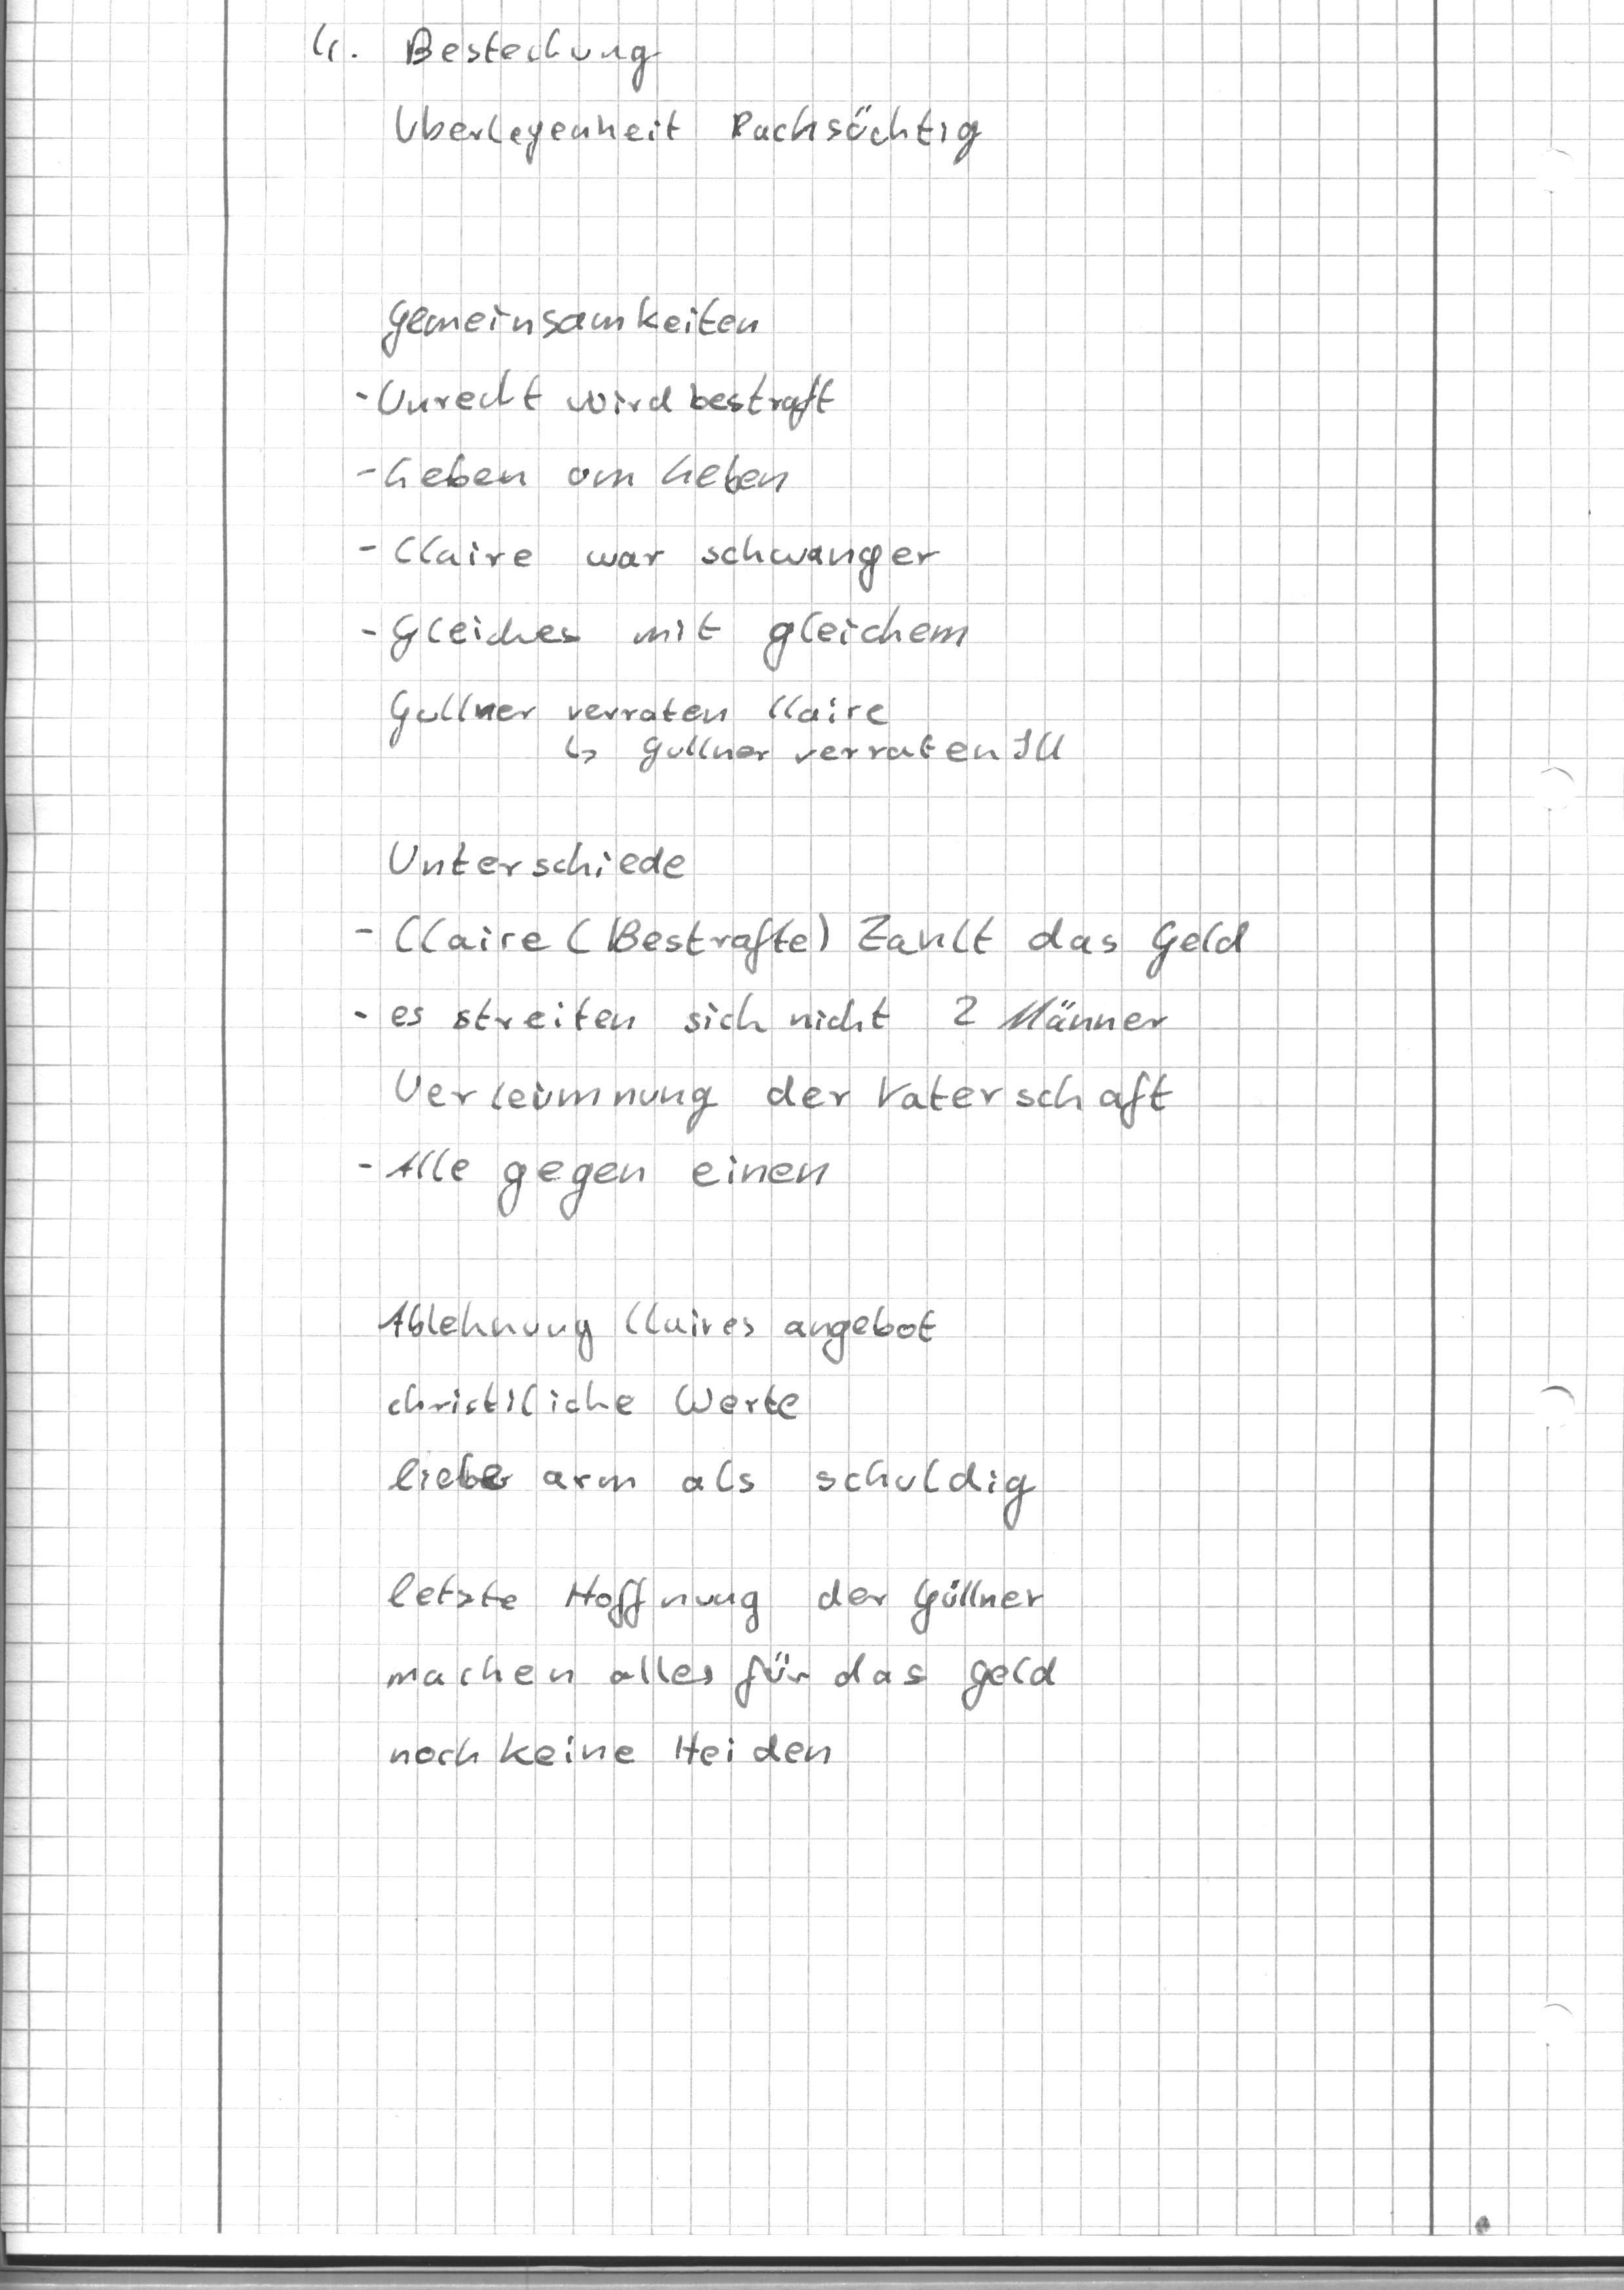 4. Bestechung
Uberlegenheit Rachsüchtig
Gemeinsamkeiten
- Unrecht wird bestraft
- Leben um Leben
- Claire war schwanger
- Gleiches mit gleichem
Gullner verraten Claire
↳ Gullner verraten Ill
Unterschiede
- Claire (Bestrafte) Zahlt das Geld
- es streiten sich nicht 2 Männer
Verleumnung der Vaterschaft
- Alle gegen einen
Ablehnung Claires angebot
christliche Werte
lieber arm als schuldig
letzte Hoffnung der Güllner
machen alles für das geld
noch keine Heiden